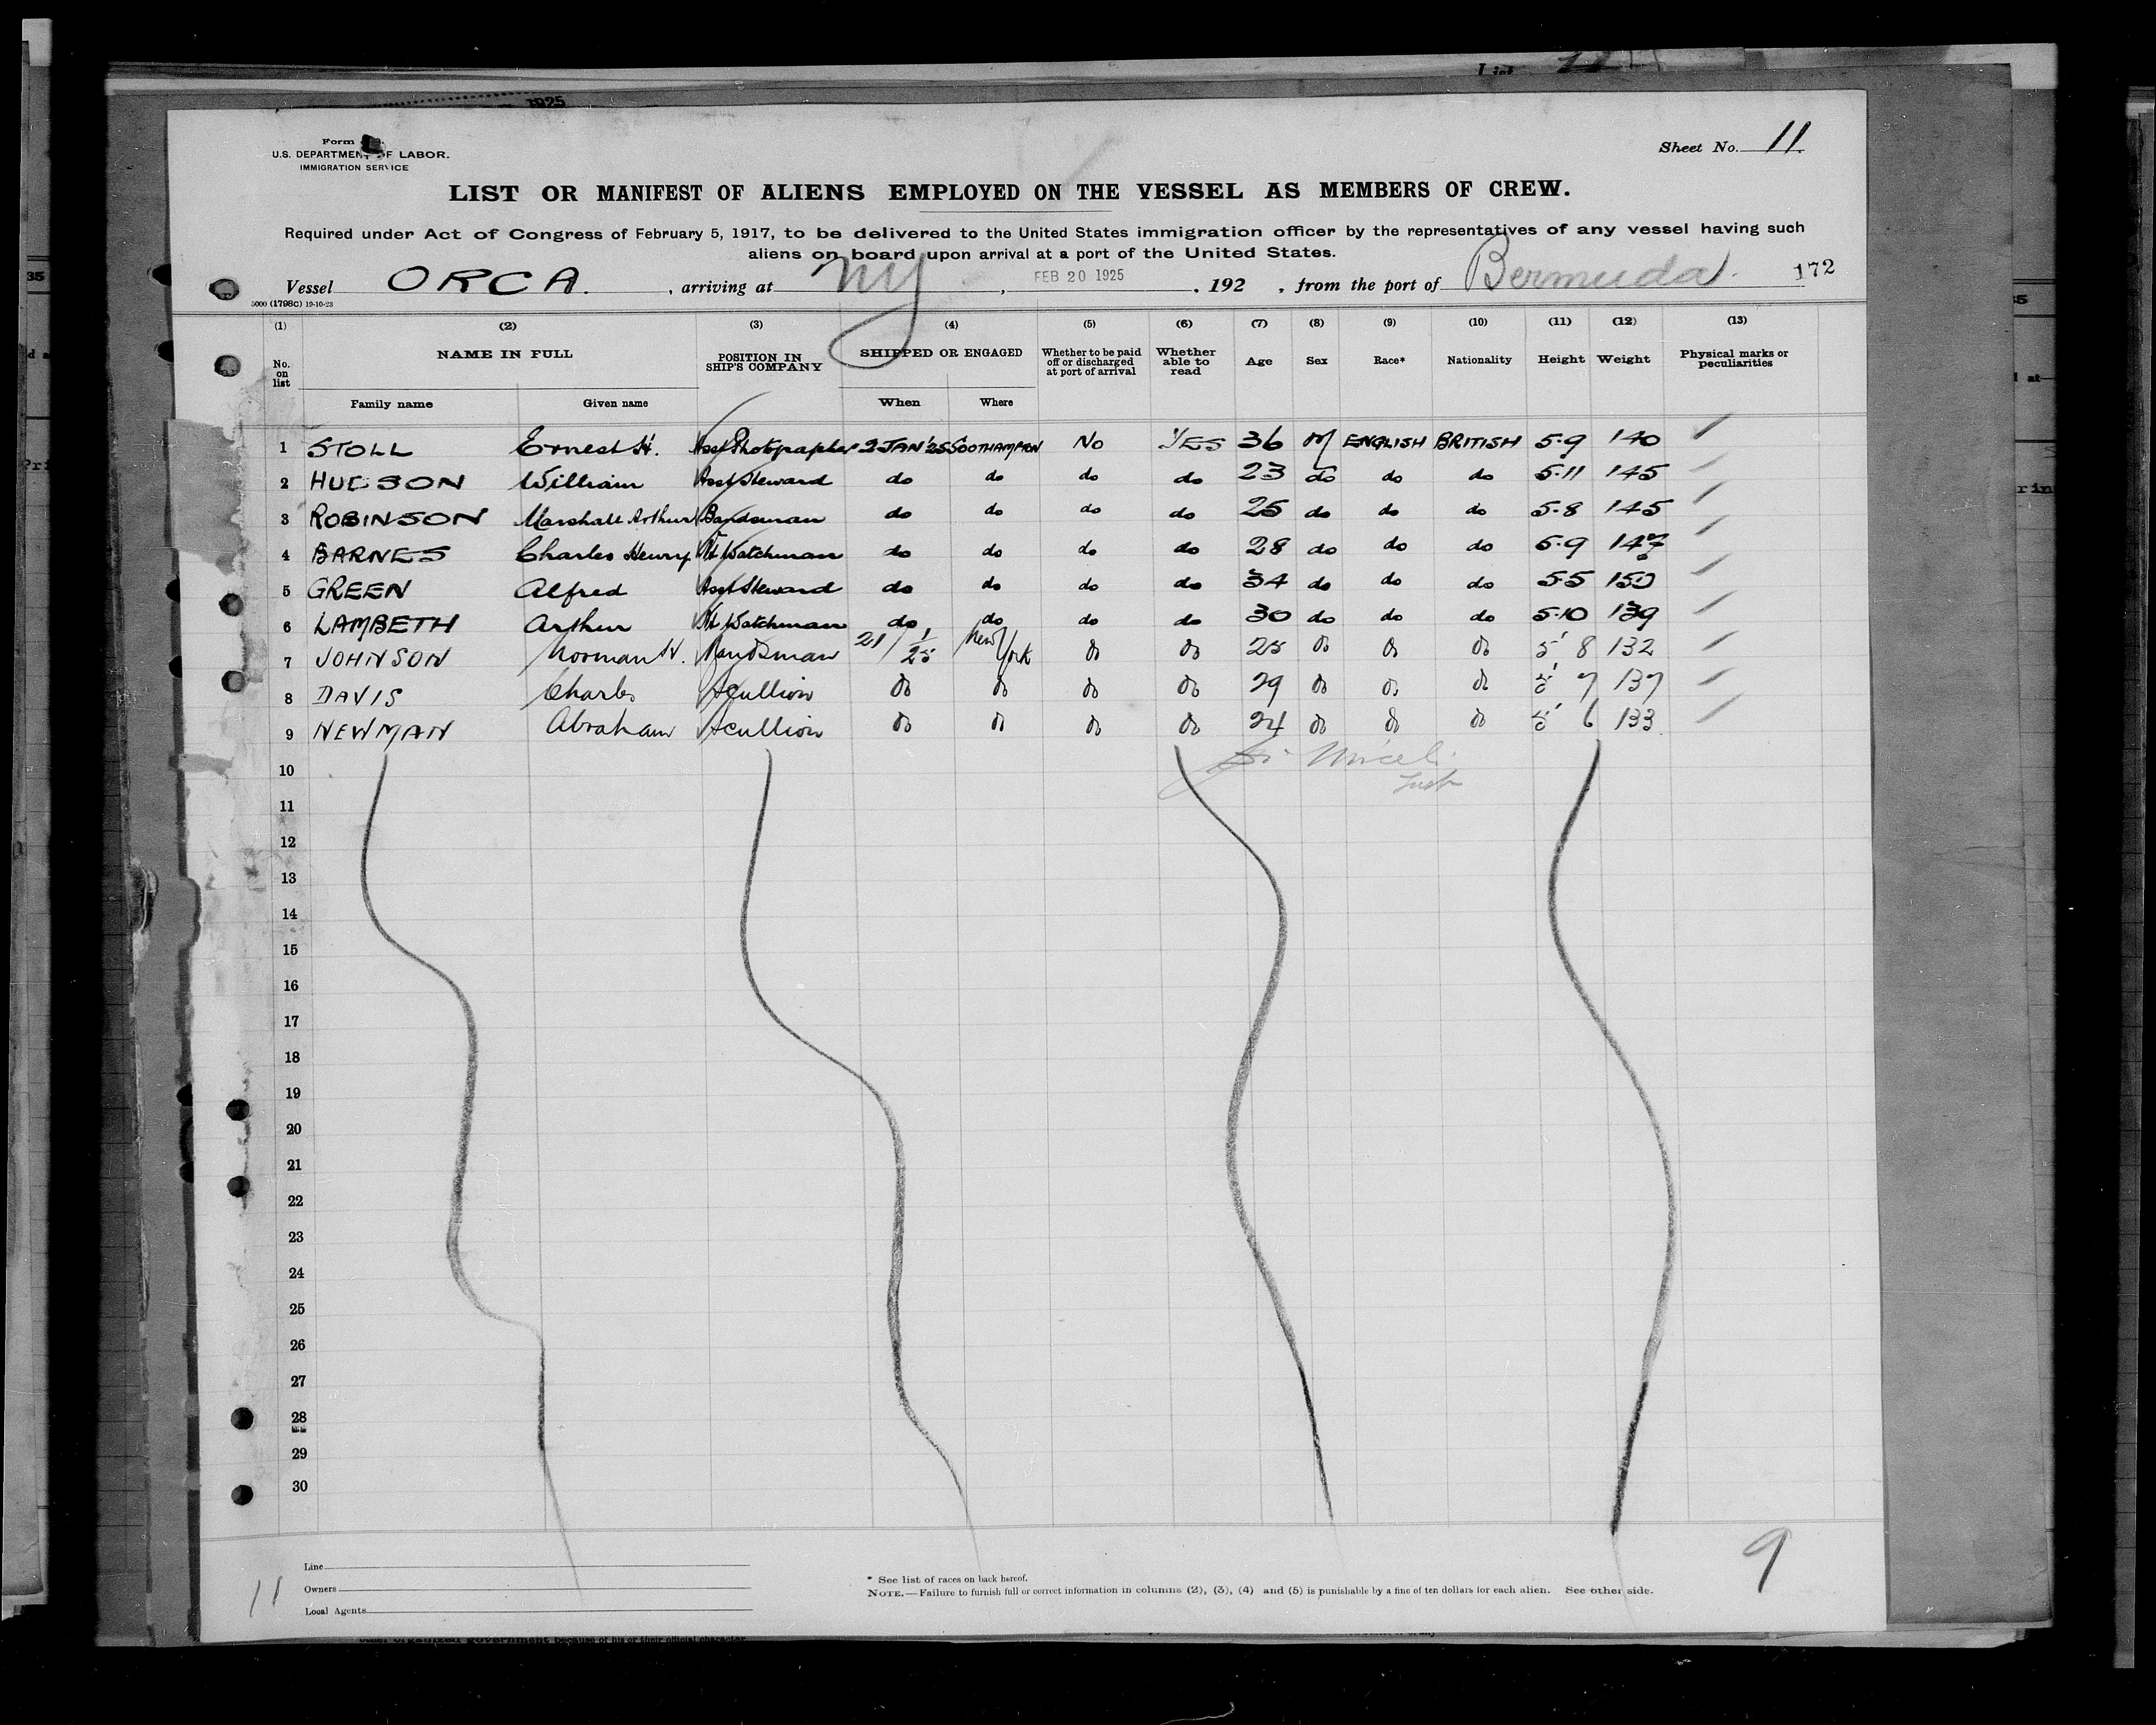 1925
List
Form
U.S. DEPARTMENT OF LABOR.
IMMIGRATION SERVICE
Sheet No. 11
LIST OR MANIFEST OF ALIENS EMPLOYED ON THE VESSEL AS MEMBERS OF CREW.
Required under Act of Congress of February 5, 1917, to be delivered to the United States immigration officer by the representatives of any vessel having such
aliens on board upon arrival at a port of the United States.
Vessel ORCA. , arriving at NY , FEB 20 1925 , 192 , from the port of Bermuda. 172
5000 (1798C) 19-10-23
(1) (2) (3) (4) (5) (6) (7) (8) (9) (10) (11) (12) (13)
No. on list NAME IN FULL POSITION IN SHIP'S COMPANY SHIPPED OR ENGAGED Whether to be paid off or discharged at port of arrival Whether able to read Age Sex Race* Nationality Height Weight Physical marks or peculiarities
Family name Given name When Where
1 STOLL Ernest H. Asst Photographer 2 JAN '25 SOUTHAMPTON No YES 36 M ENGLISH BRITISH 5.9 140
2 HUDSON William Asst Steward do do do do 23 do do do 5.11 145
3 ROBINSON Marshall Arthur Bandsman do do do do 25 do do do 5.8 145
4 BARNES Charles Henry Nt Watchman do do do do 28 do do do 5.9 147
5 GREEN Alfred Asst Steward do do do do 34 do do do 5.5 150
6 LAMBETH Arthur Nt Watchman do do do do 30 do do do 5.10 139
7 JOHNSON Norman H. Bandsman 21/1/25 New York do do 25 do do do 5' 8 132
8 DAVIS Charles Scullion do do do do 29 do do do 5' 7 137
9 NEWMAN Abraham Scullion do do do do 24 do do do 5' 6 133
10
11
12
13
14
15
16
17
18
19
20
21
22
23
24
25
26
27
28
29
30
9
11
Line
Owners
Local Agents
* See list of races on back hereof.
NOTE.—Failure to furnish full or correct information in columns (2), (3), (4) and (5) is punishable by a fine of ten dollars for each alien. See other side.